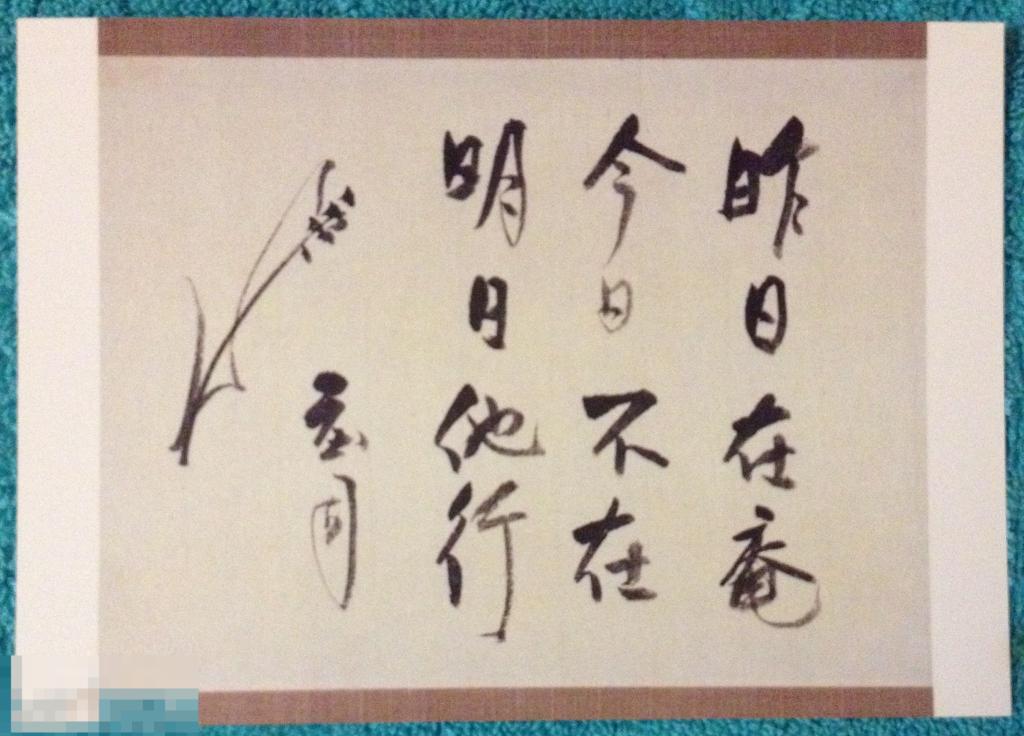 昨日在庵
今日不在
明日他行